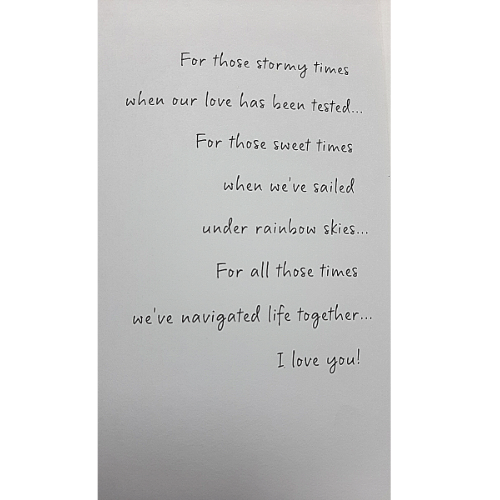 For those stormy times
when our love has been tested...
For those sweet times
when we've sailed
under rainbow skies...
For all those times
we've navigated life together...
I love you!